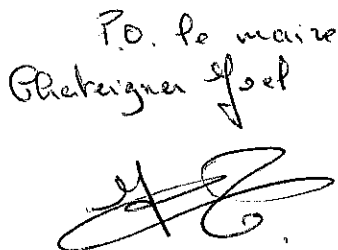 P.O. le maire
Chateigner Joel